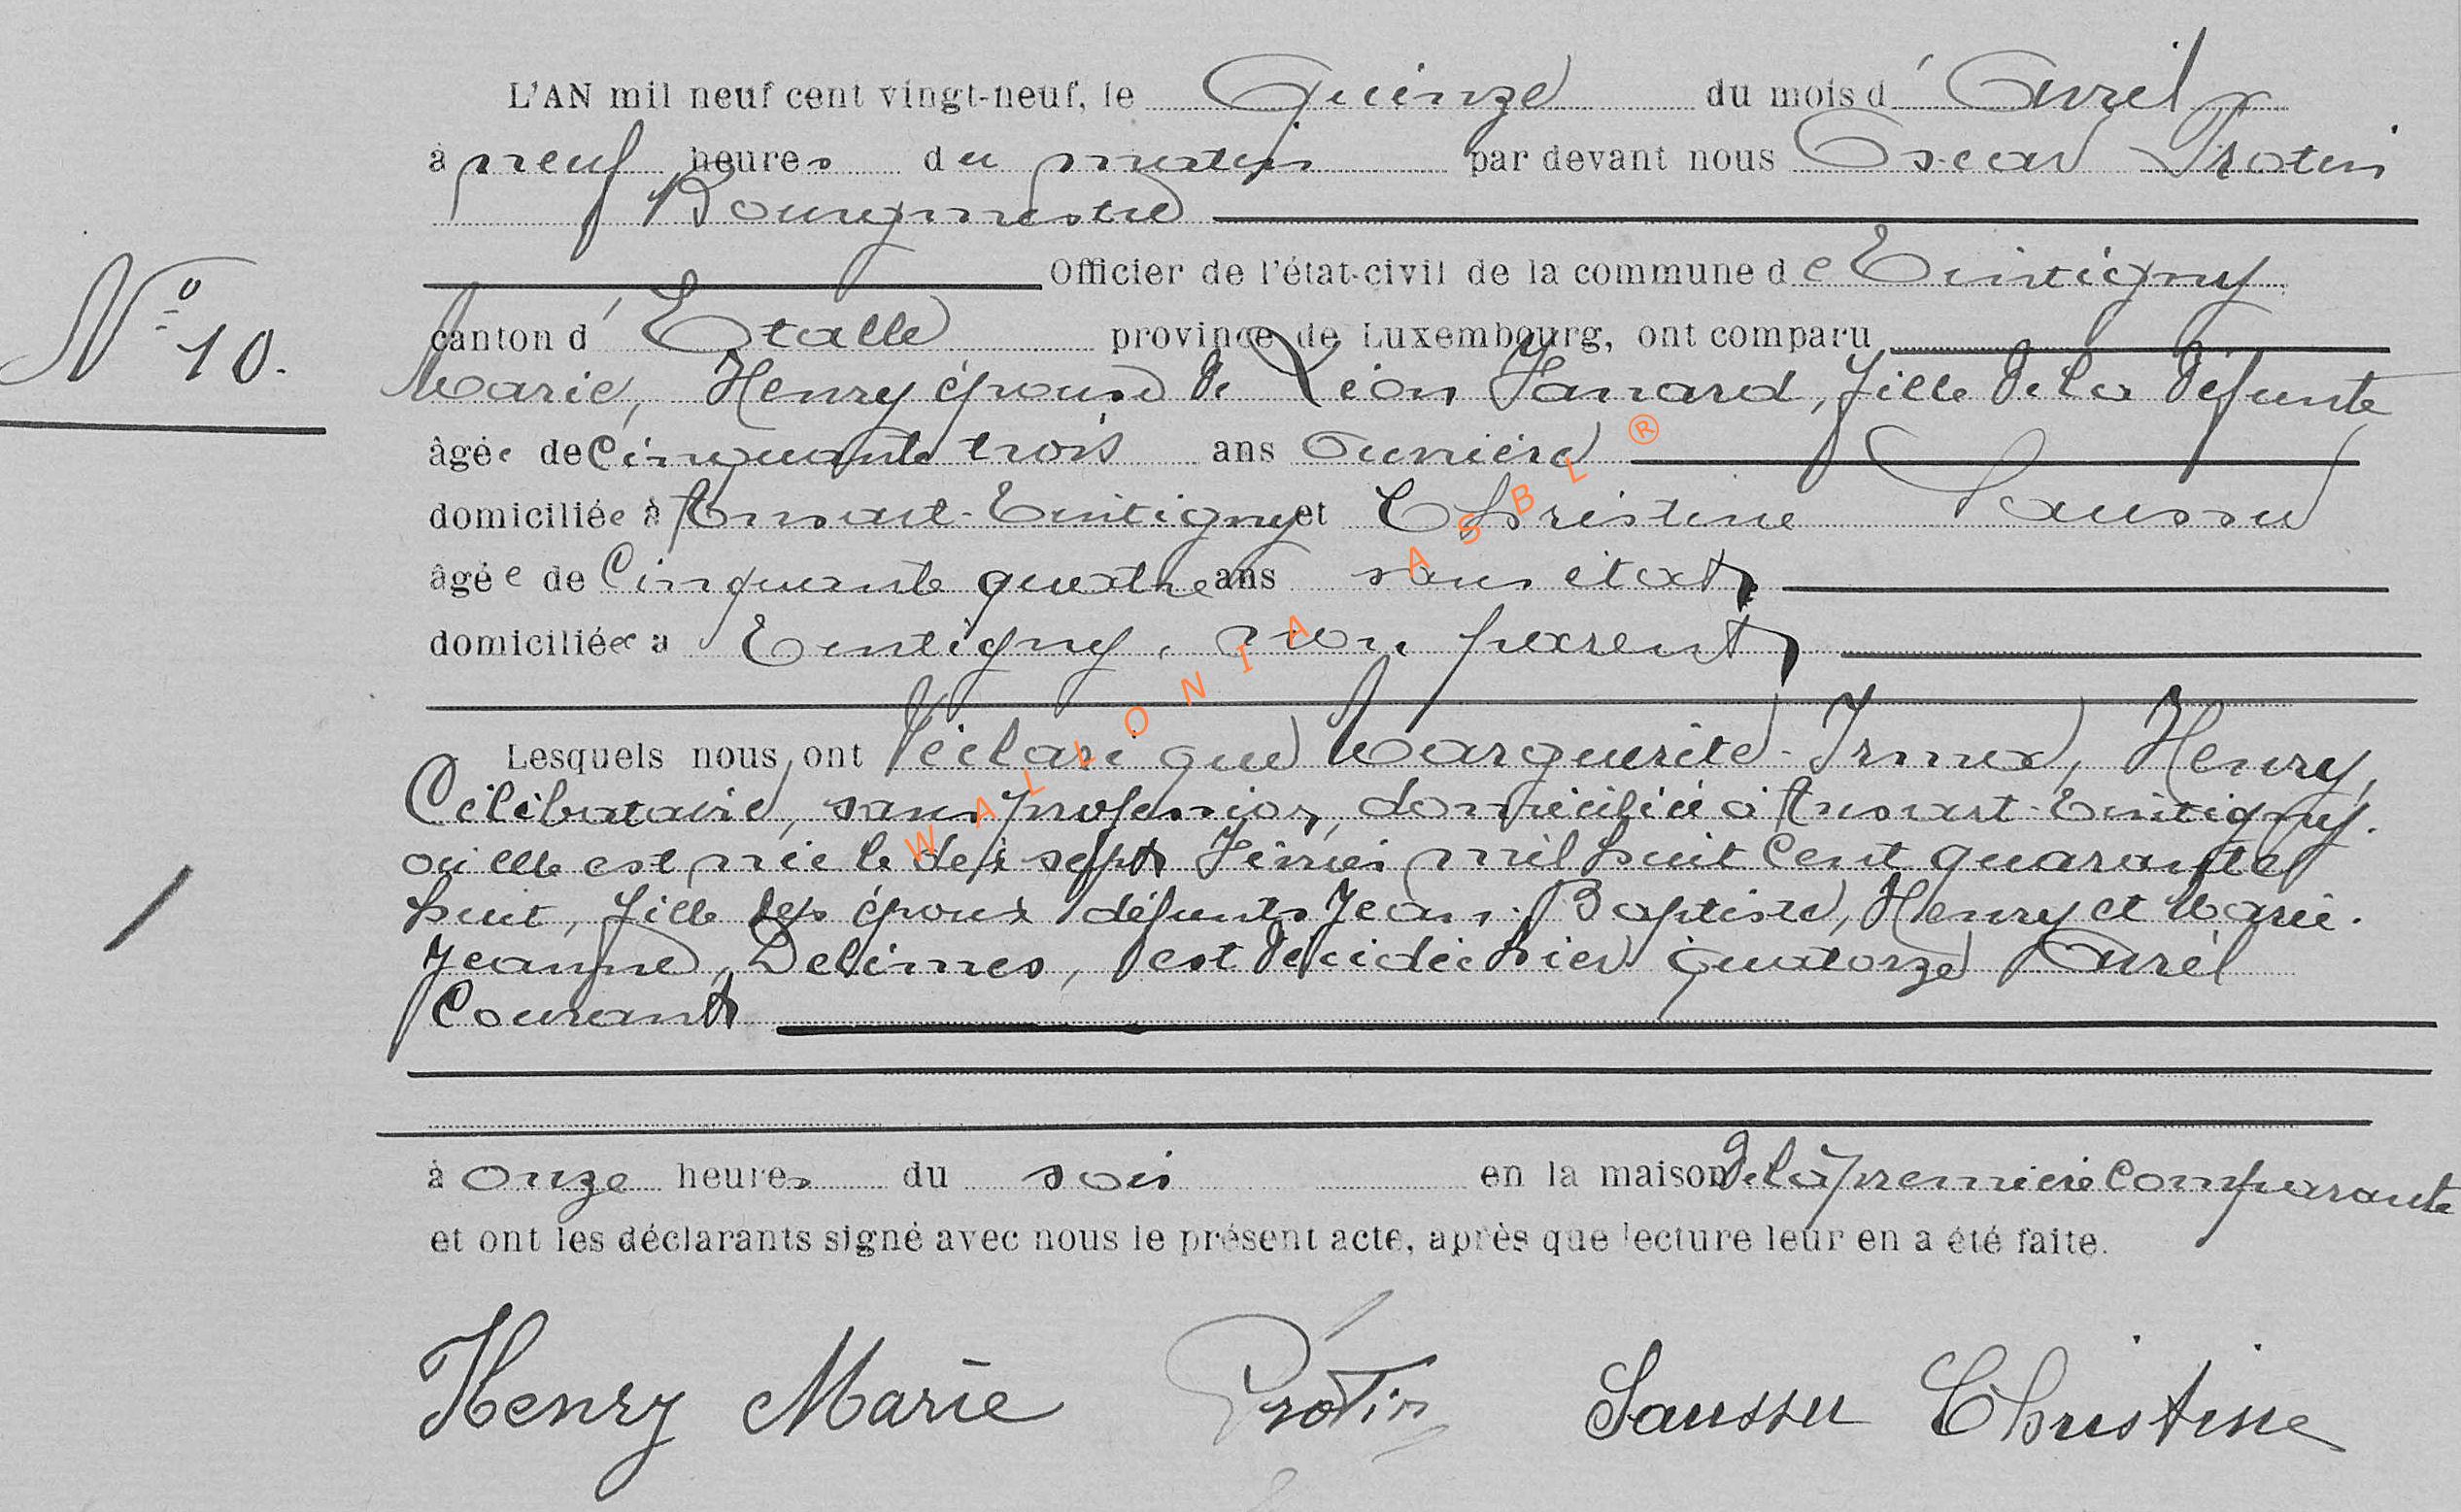 L'AN mil neuf cent vingt-neuf, le Quinze du mois d'Avril
à neuf heures du matin par devant nous Oscar Protin
Bourgmestre
Officier de l'état-civil de la commune de Tintigny
N° 10.
canton d'Etalle province de Luxembourg, ont comparu
Marie, Henry épouse de Léon Hanard, fille de la défunte
âgée de Cinquante trois ans Ouvrière
domiciliée à Ansart-Tintigny et Christine Saussu
âgée de Cinquante quatre ans sans état
domiciliée à Tintigny, non parent
Lesquels nous ont déclaré que Marguerite-Irma, Henry,
Célibataire, sans profession, domiciliée à Ansart-Tintigny.
où elle est née le dix sept Février mil huit Cent quarante
huit, fille des époux défunts Jean-Baptiste, Henry et Marie-
Jeanne, Delimes, est décédée hier quatorze Avril
Courant
à onze heures du soir en la maison de la première Comparante
et ont les déclarants signé avec nous le présent acte, après que lecture leur en a été faite.
Henry Marie Protin Saussu Christine
WALLONIA ASBL ®